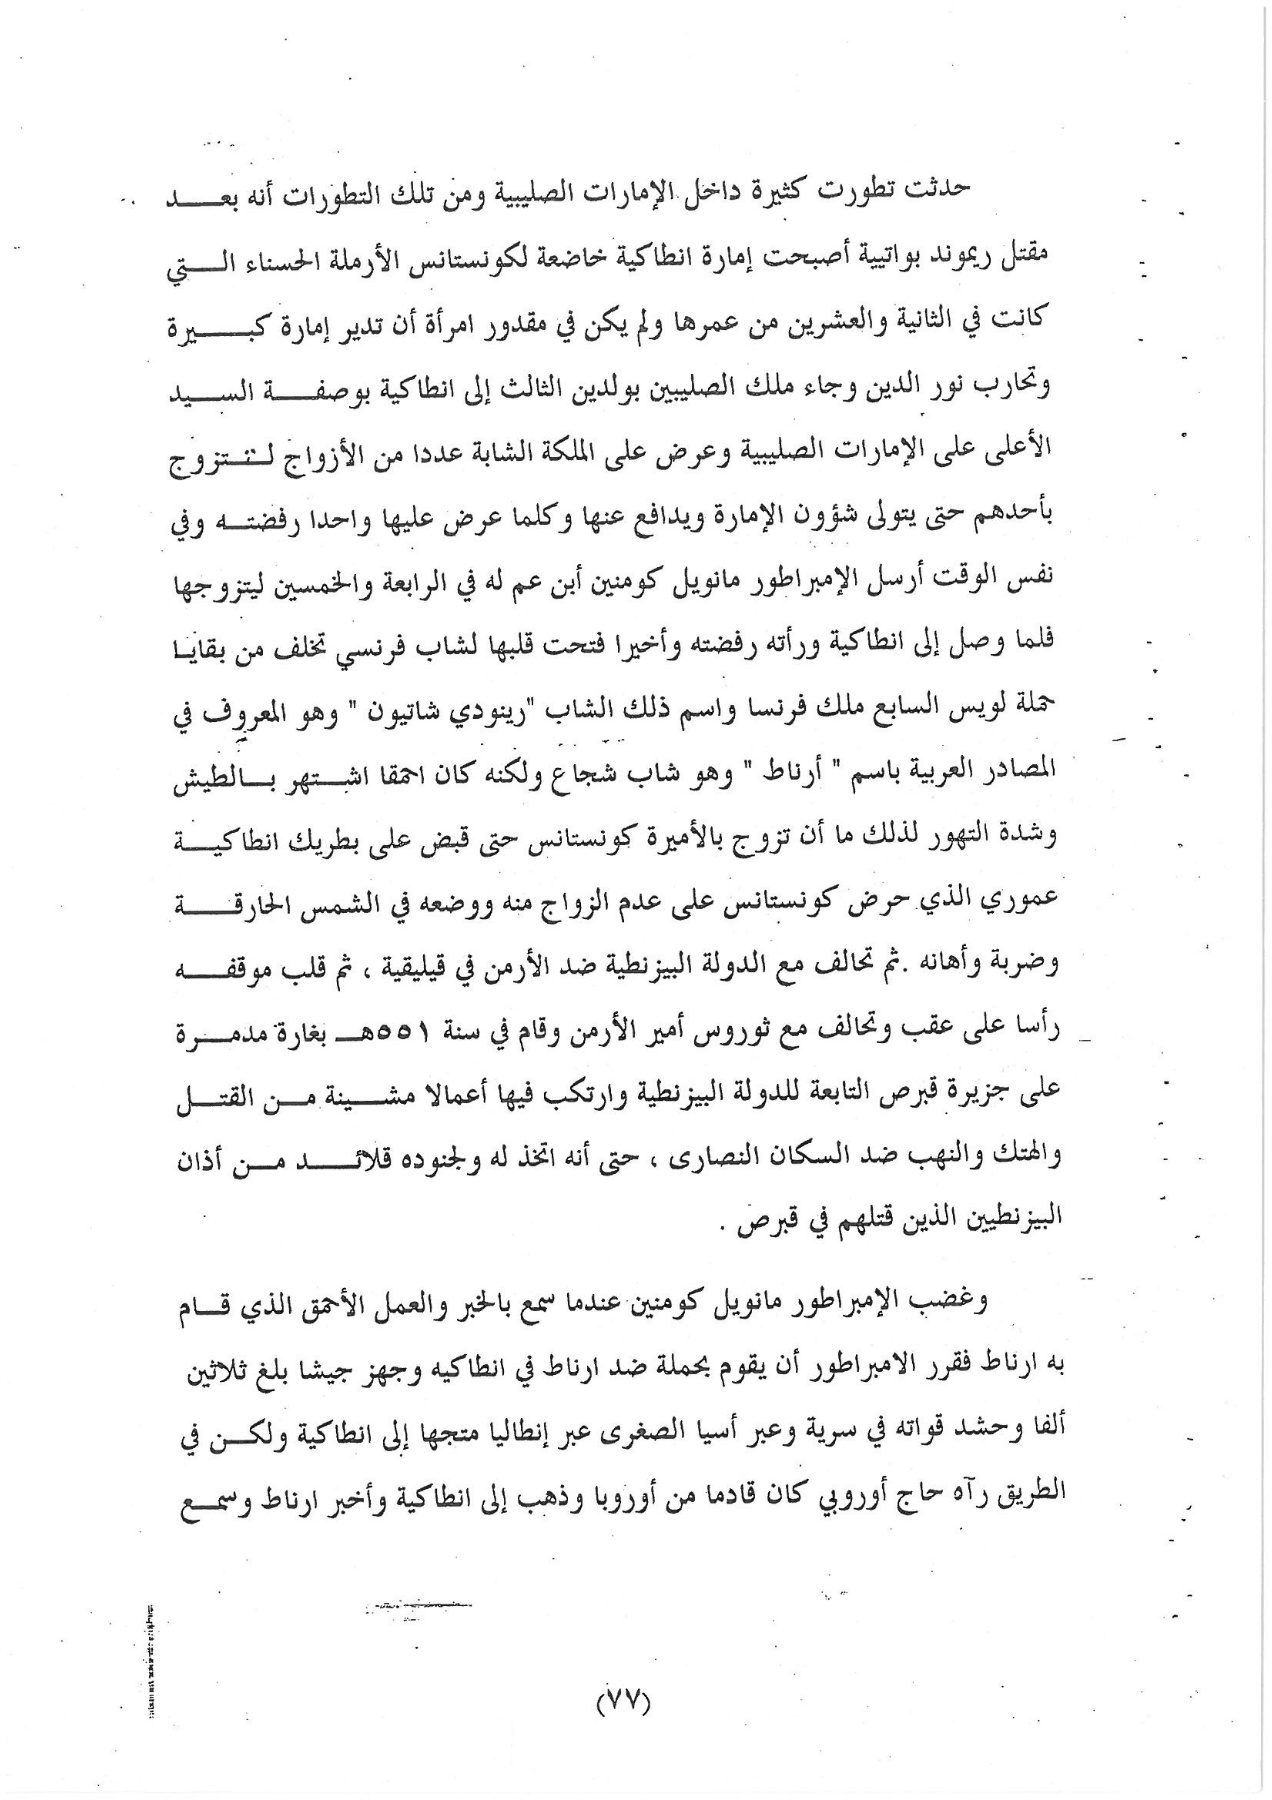 حدثت تطورت كثيرة داخل الإمارات الصليبية ومن تلك التطورات أنه بعد
مقتل ريموند بواتيية أصبحت إمارة انطاكية خاضعة لكونستانس الأرملة الحسناء التي
كانت في الثانية والعشرين من عمرها ولم يكن في مقدور امرأة أن تدير إمارة كبيرة
وتحارب نور الدين وجاء ملك الصليبين بولدين الثالث إلى انطاكية بوصفة السيد
الأعلى على الإمارات الصليبية وعرض على الملكة الشابة عددا من الأزواج لتتزوج
بأحدهم حتى يتولى شؤون الإمارة ويدافع عنها وكلما عرض عليها واحدا رفضته وفي
نفس الوقت أرسل الإمبراطور مانويل كومنين أبن عم له في الرابعة والخمسين ليتزوجها
فلما وصل إلى انطاكية ورأته رفضته وأخيرا فتحت قلبها لشاب فرنسي تخلف من بقايا
حملة لويس السابع ملك فرنسا واسم ذلك الشاب "رينودي شاتيون " وهو المعروف في
المصادر العربية باسم " أرناط " وهو شاب شجاع ولكنه كان احمقا اشتهر بالطيش
وشدة التهور لذلك ما أن تزوج بالأميرة كونستانس حتى قبض على بطريك انطاكية
عموري الذي حرض كونستانس على عدم الزواج منه ووضعه في الشمس الحارقة
وضربة وأهانه .ثم تحالف مع الدولة البيزنطية ضد الأرمن في قيليقية ، ثم قلب موقفه
رأسا على عقب وتحالف مع ثوروس أمير الأرمن وقام في سنة ٥٥١هـ بغارة مدمرة
على جزيرة قبرص التابعة للدولة البيزنطية وارتكب فيها أعمالا مشينة من القتل
والهتك والنهب ضد السكان النصارى ، حتى أنه اتخذ له ولجنوده قلائد من أذان
البيزنطيين الذين قتلهم في قبرص .
وغضب الإمبراطور مانويل كومنين عندما سمع بالخبر والعمل الأحمق الذي قام
به ارناط فقرر الامبراطور أن يقوم بحملة ضد ارناط في انطاكيه وجهز جيشا بلغ ثلاثين
ألفا وحشد قواته في سرية وعبر أسيا الصغرى عبر إنطاليا متجها إلى انطاكية ولكن في
الطريق رآه حاج أوروبي كان قادما من أوروبا وذهب إلى انطاكية وأخبر ارناط وسمع
(٧٧)